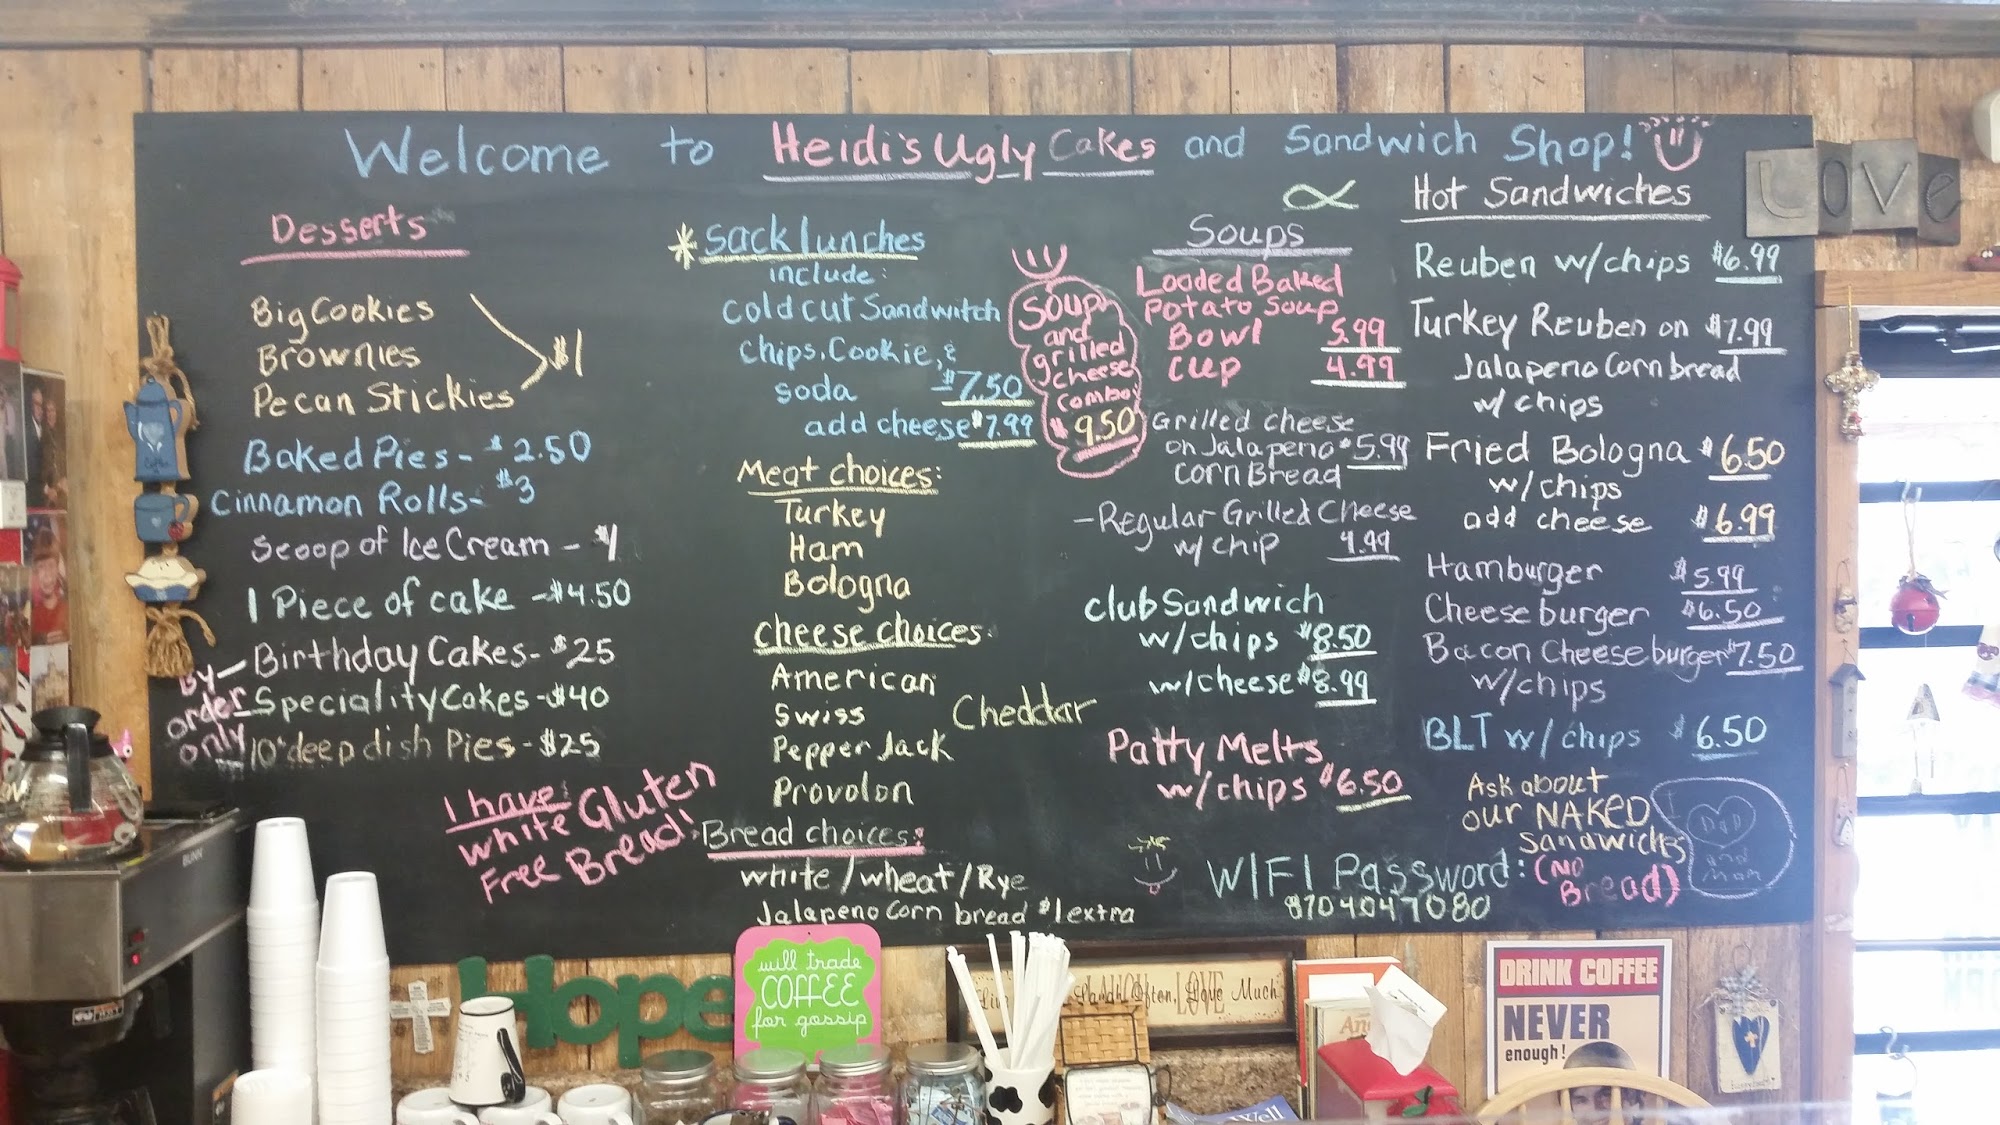 Welcome to Heidi's Ugly Cakes and Sandwich Shop!
Desserts
Big Cookies
Brownies
Pecan Stickies
$1
Baked Pies - $2.50
Cinnamon Rolls - $3
Scoop of Ice Cream - $1
1 Piece of cake - $4.50
By order only
Birthday Cakes - $25
Speciality Cakes - $40
10" deep dish Pies - $25
I have:
white Gluten
Free Bread!
* Sack lunches
include:
cold cut Sandwitch
chips, Cookie, &
soda $7.50
add cheese $7.99
Meat choices:
Turkey
Ham
Bologna
cheese choices:
American
Swiss
Cheddar
Pepper Jack
Provolon
Bread choices:
white/wheat/Rye
Jalapeno Corn bread $1 extra
Soup
and
grilled
cheese
combo!
$9.50
Soups
Loaded Baked
Potato Soup
Bowl 5.99
Cup 4.99
Grilled cheese
on Jalapeno $5.99
Corn Bread
- Regular Grilled Cheese
w/chip 4.99
club Sandwich
w/chips $8.50
w/cheese $8.99
Patty Melts
w/chips $6.50
WIFI Password:
8704047080
Hot Sandwiches
Reuben w/chips $6.99
Turkey Reuben on $7.99
Jalapeno Corn bread
w/chips
Fried Bologna $6.50
w/chips
add cheese $6.99
Hamburger $5.99
Cheese burger $6.50
Bacon Cheese burger $7.50
w/chips
BLT w/chips $6.50
Ask about
our NAKED
Sandwiches
(NO
Bread)
I
DaD
and
mom
Love
BUNN
Hope
will trade
COFFEE
for gossip
Live Laugh Often, Love Much
DRINK COFFEE
NEVER
enough!